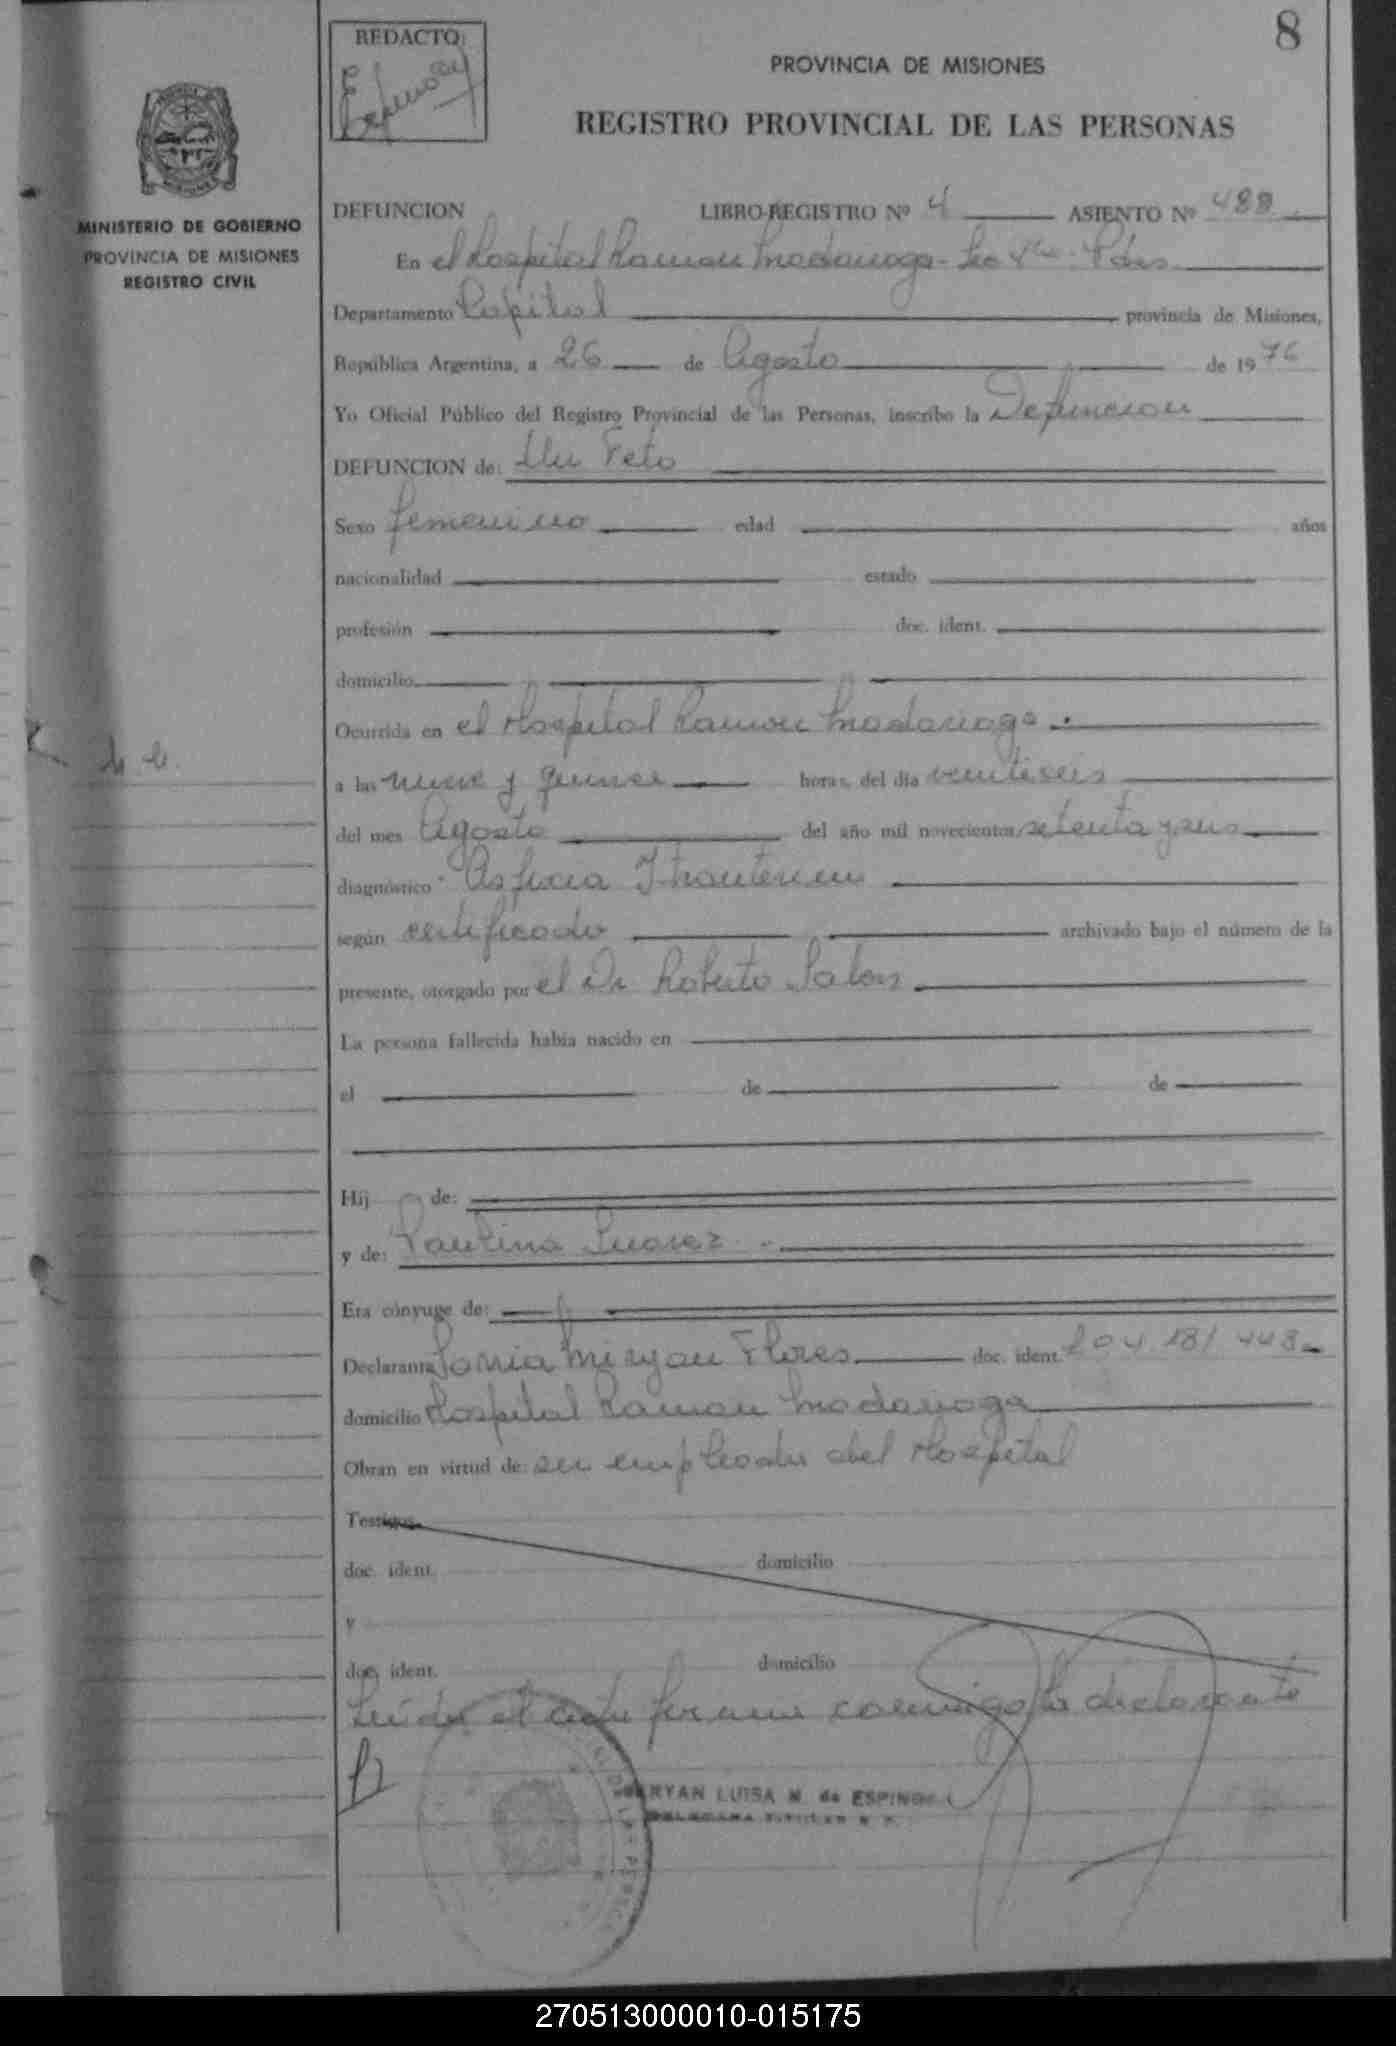 8
REDACTO:
PROVINCIA DE MISIONES
REGISTRO PROVINCIAL DE LAS PERSONAS
MINISTERIO DE GOBIERNO
PROVINCIA DE MISIONES
REGISTRO CIVIL
DEFUNCION LIBRO-REGISTRO Nº 4 ASIENTO Nº 488
En el Hospital Ramon Madariaga - Pdas
Departamento Capital provincia de Misiones,
República Argentina, a 26 de Agosto de 1976
Yo Oficial Público del Registro Provincial de las Personas, inscribo la Defuncion
DEFUNCION de: Un Feto
Sexo femenino edad años
nacionalidad estado
profesión doc. ident.
domicilio
Ocurrida en el Hospital Ramon Madariaga
a las nueve y quince horas, del día veintiseis
del mes Agosto del año mil novecientos setenta y seis
diagnóstico Asfixia
según certificado archivado bajo el número de la
presente, otorgado por el Dr Roberto
La persona fallecida había nacido en
el de de
Hij de:
y de: Paulina Suarez
Era cónyuge de:
Declarante Sonia Miryan Flores doc. ident.
domicilio Hospital Ramon Madariaga
Obran en virtud de: ser empleada del Hospital
Testigos
doc. ident. domicilio
y
doc. ident. domicilio
Leída el acta firma conmigo la declarante
RYAN LUISA M. de ESPINOSA
270513000010-015175